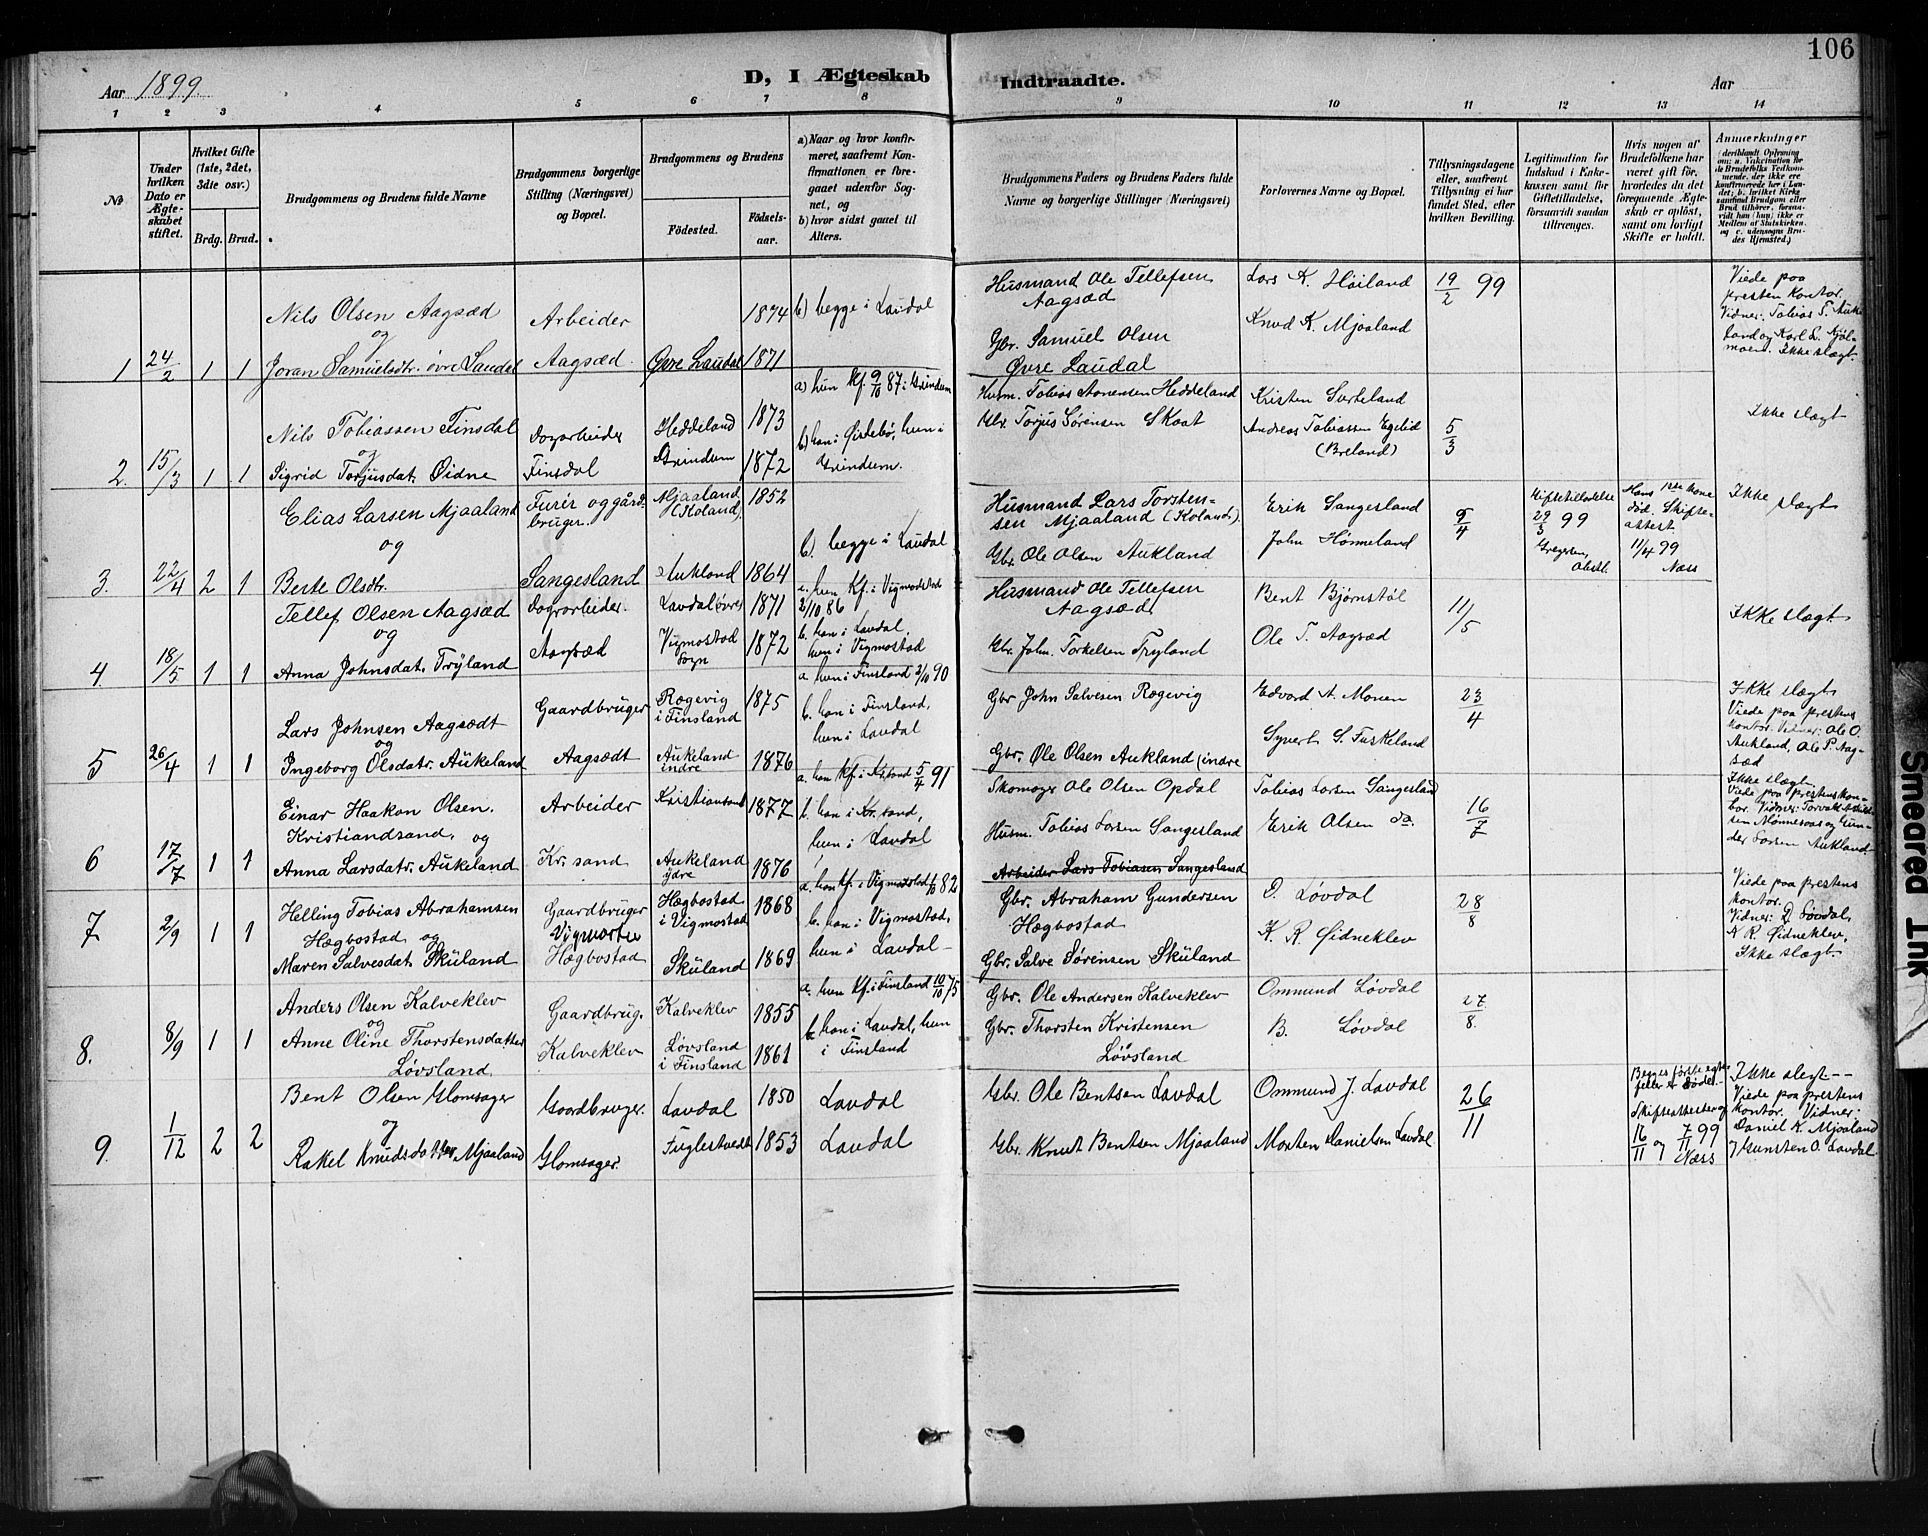 106
Aar 1899. D, I Ægteskab Indtraadte. Aar
1 2 3 4 5 6 7 8 9 10 11 12 13 14
No
Under hvilken Dato er Ægteskabet stiftet.
Hvilket Gifte (1ste, 2det, 3die osv.)
Brdg. Brud.
Brudgommens og Brudens fulde Navne
Brudgommens borgerlige Stilling (Næringsvei) og Bopæl.
Brudgommens og Brudens
Fødested.
Fødselsaar.
a) Naar og hvor konfirmeret, saafremt Konfirmationen er foregaaet udenfor Sognet, og
b) hvor sidst gaaet til Alters.
Brudgommens Faders og Brudens Faders fulde Navne og borgerlige Stillinger (Næringsvei)
Forlovernes Navne og Bopæl.
Tillysningsdagene eller, saafremt Tillysning ei har fundet Sted, efter hvilken Bevilling.
Legitimation for Indskud i Enkekassen samt for Giftetilladelse, forsaavidt saadan tiltrænges.
Hvis nogen af Brudefolkene har været gift før, hvorledes da det foregaaende Ægteskab er opløst, samt om lovligt Skifte er holdt.
Anmerkninger
1 24/2 1 1
Nils Olsen Aagsæd
og
Joran Samuelsdtr. øvre Laudal
Arbeider
Aagsæd
Øvre Laudal
1874
1871
b) begge i Laudal
Husmand Ole Tellefsen
Aagsæd
Gbr. Samuel Olsen
Øvre Laudal
Lars K. Høiland
Knud K. Mjaaland
19/2 99
Viede paa
presten Kontor.
Vidner: Tobias T. Auke
land og Karl L. Kjøl-
moen. Ikke slægt.
2. 15/3 1 1
Nils Tobiassen Finsdal
og
Sigrid Torjusdat. Øidne
Dagarbeider
Finsdal
Heddeland
Grindum
1873
1872
a) hun kf. 9/10 87 i Grindum
b) han i Øislebø, hun i
Grindum.
Husm. Tobias Aanensen Heddeland
Gbr. Torjus Sørensen Skaat
Kristen Surteland
Andreas Tobiassen Egelid
(Breland)
5/3
Ikke slægt
3. 22/4 2 1
Elias Larsen Mjaaland
og
Berte Olsdtr.
Furér og gård-
bruger.
Sangesland
Mjaaland
(Koland)
Aukland
1852
1864
b). begge i Laudal
Husmand Lars Torsten-
sen Mjaaland (Koland).
Gbr. Ole Olsen Aukland
Erik Sangesland
John Hønneland
9/4
Giftetilladelse
29/3 99
Hans 1ste kone
død. Skifte-
attest
11/4 99
Næss
Ikke
slægt
4. 18/5 1 1
Tellef Olsen Aagsæd
og
Anna Johnsdat. Trÿland
Dagarbeider.
Aagsæd
Laudal (øvre)
Vigmostad
Sogn
1871
1872
a. hun Kf. i Vigmodstad
2/10 86
b. han i Laudal,
hun i Vigmostad
Husmand Ole Tellefsen
Aagsæd
Gbr. John. Torkelsen Tryland
Bent Bjørnstøl
Ole T. Aagsæd
11/5
Ikke slægt
5 26/4 1 1
Lars Johnsen Aagsædt
og
Ingeborg Olsdatr. Aukeland
Gaardbruger
Aagsædt
Røgevig
i Finsland
Aukeland
indre
1875
1876
a. hun i Finsland 2/10 90
b. han i Finsland,
hun i Laudal
Gbr John Salvesen Røgevig
Gbr. Ole Olsen Aukland (indre
Edvard A. Monen
Syvert S. Fuskeland
23/4
Ikke slægt
Viede paa prestens
kontor. Vidner: Ole O.
Aukland, Ole P. Aag-
sæd
6 17/7 1 1
Einar Haakon Olsen.
Kristiandsand, og
Anna Larsdatr. Aukeland
Arbeider
Kr. sand
Kristiansand
Aukeland
ydre
1877
1876
a. han kf. i Kr.sand 5/4 91
b. han i Kr. sand,
hun i Laudal
Skomager Ole Olsen Opdal
Husm. Tobias Larsen Sangesland
Arbeider Lars Tobiasen Sangesland
Tobias Larsen Sangesland
Erik Olsen do.
16/7
Ikke slægt
Viede paa prestens kon-
tor. Vidner:
7 2/9 1 1
Helling Tobias Abrahamsen
Hægbostad og
Maren Salvesdat. Skuland
Gaardbruger
Hægbostad
Hægbostad
i Vigmostad
Skuland
1868
1869
a. han kf. i Vigmostad 1/10 82
b. han i Vigmostad,
hun i Laudal
Gbr. Abraham Gundersen
Hægbostad
Gbr. Salve Sørensen Skuland
O. Løvdal
K. R. Øidneklev
28/8
Viede paa prestens
kontor.
Vidner: O. Løvdal,
K R. Øidneklev.
Ikke slægt.
8. 8/9 1 1
Anders Olsen Kalveklev
og
Anne Oline Thorstensdatter
Løvsland
Gaardbrug.
Kalveklev
Kalveklev
Løvsland
i Finsland
1855
1861
a. hun Kf. i Finsland 10/10 75
b. han i Laudal, hun
i Finsland
Gbr. Ole Andersen Kalveklev
Gbr. Thorsten Kristensen
Løvsland
Ommund Løvdal
B. Løvdal
27/8.
9. 1/12 2 2
Bent Olsen Glomsager
og
Rakel Knudsdatter Mjaaland
Gaardbruger.
Glomsager.
Laudal
Fuglestvedt
1850
1853
Laudal
Laudal
Gbr. Ole Bentsen Laudal
Gbr. Knut Bentsen Mjaaland
Ommund J. Laudal
Morten Danielsen Laudal
26/11
Begges første egte-
feller er døde.
Skifteattester af
16/11 og 7/11 99
Næss
Ikke slegt--
Viede paa prestens
kontor. Vidner:
Daniel K. Mjaaland
Gunsten O. Laudal.
Smeared Ink